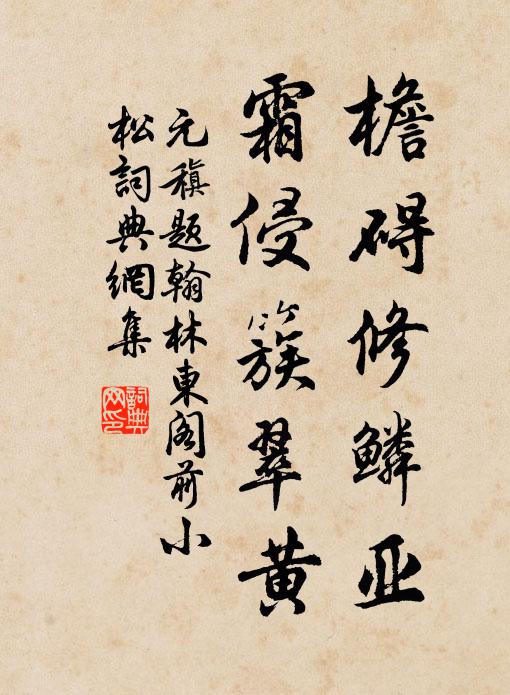 檐碍修鳞亚
霜侵簇翠黄
元稹题翰林東阁前小
松詞典網集
詞典
网印